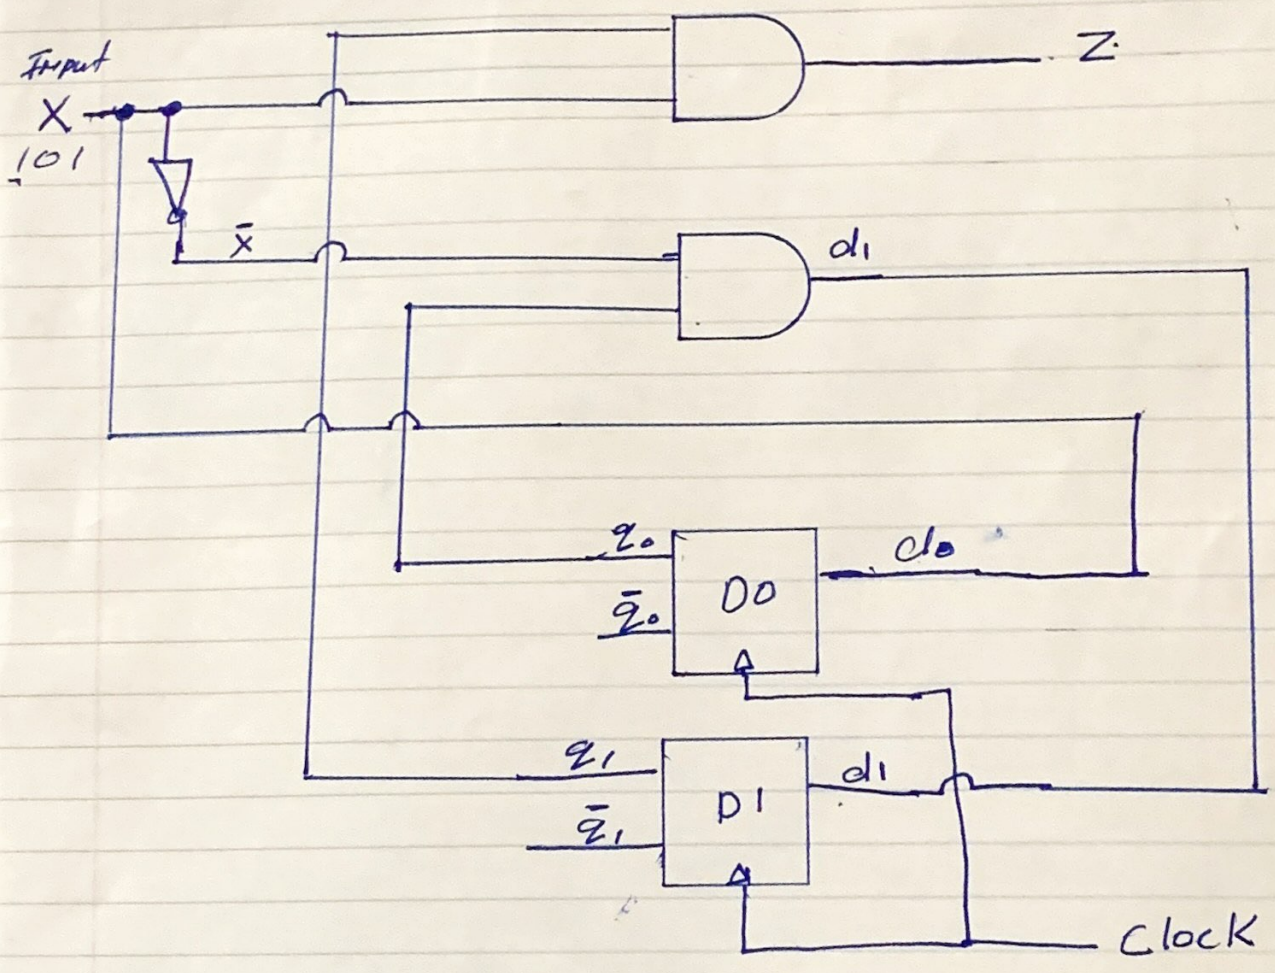 Input
X
101
Z
x̄
d1
q0
q̄0
D0
d0
q1
q̄1
D1
d1
Clock